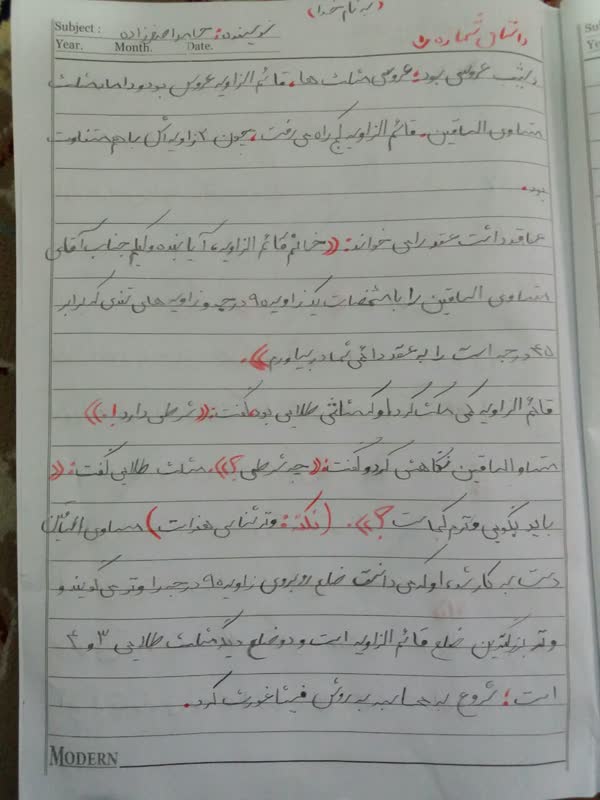 (به نام خدا)
Subject :
Year. Month. Date.
نویسنده:
داستان شماره
شب عروسی بود؛ عروسی مثلث ها، قائم الزاویه عروس بود و داماد مثلث
متساوی الساقین. قائم الزاویه کج راه می رفت، چون ۳ زاویه اش باهم متفاوت
بود.
عاقد داشت عقد را می خواند: «خانم قائم الزاویه، آیا بنده وکیلم جناب آقای
متساوی الساقین را با مشخصات یک زاویه ۹۰ درجه و زاویه های تندی که برابر
۴۵ درجه است را به عقد دائمی شما در بیاورم؟».
قائم الزاویه کمی مکث کرد او که مثلثی طلایی بود گفت: «شرطی دارد!»
متساوی الساقین نگاهش کرد و گفت: «چه شرطی؟». مثلث طلایی گفت: «
باید بگویی وترم کجاست؟». (نکته: وتر شناسی هنر است) متساوی الساقین
دست به کار شد، او که می دانست ضلع روبروی زاویه ۹۰ درجه را وتر می گویند و
وتر بزرگترین ضلع قائم الزاویه است و دو ضلع دیگر مثلث طلایی ۳ و ۴
است؛ شروع به محاسبه به روش فیثاغورث کرد.
MODERN